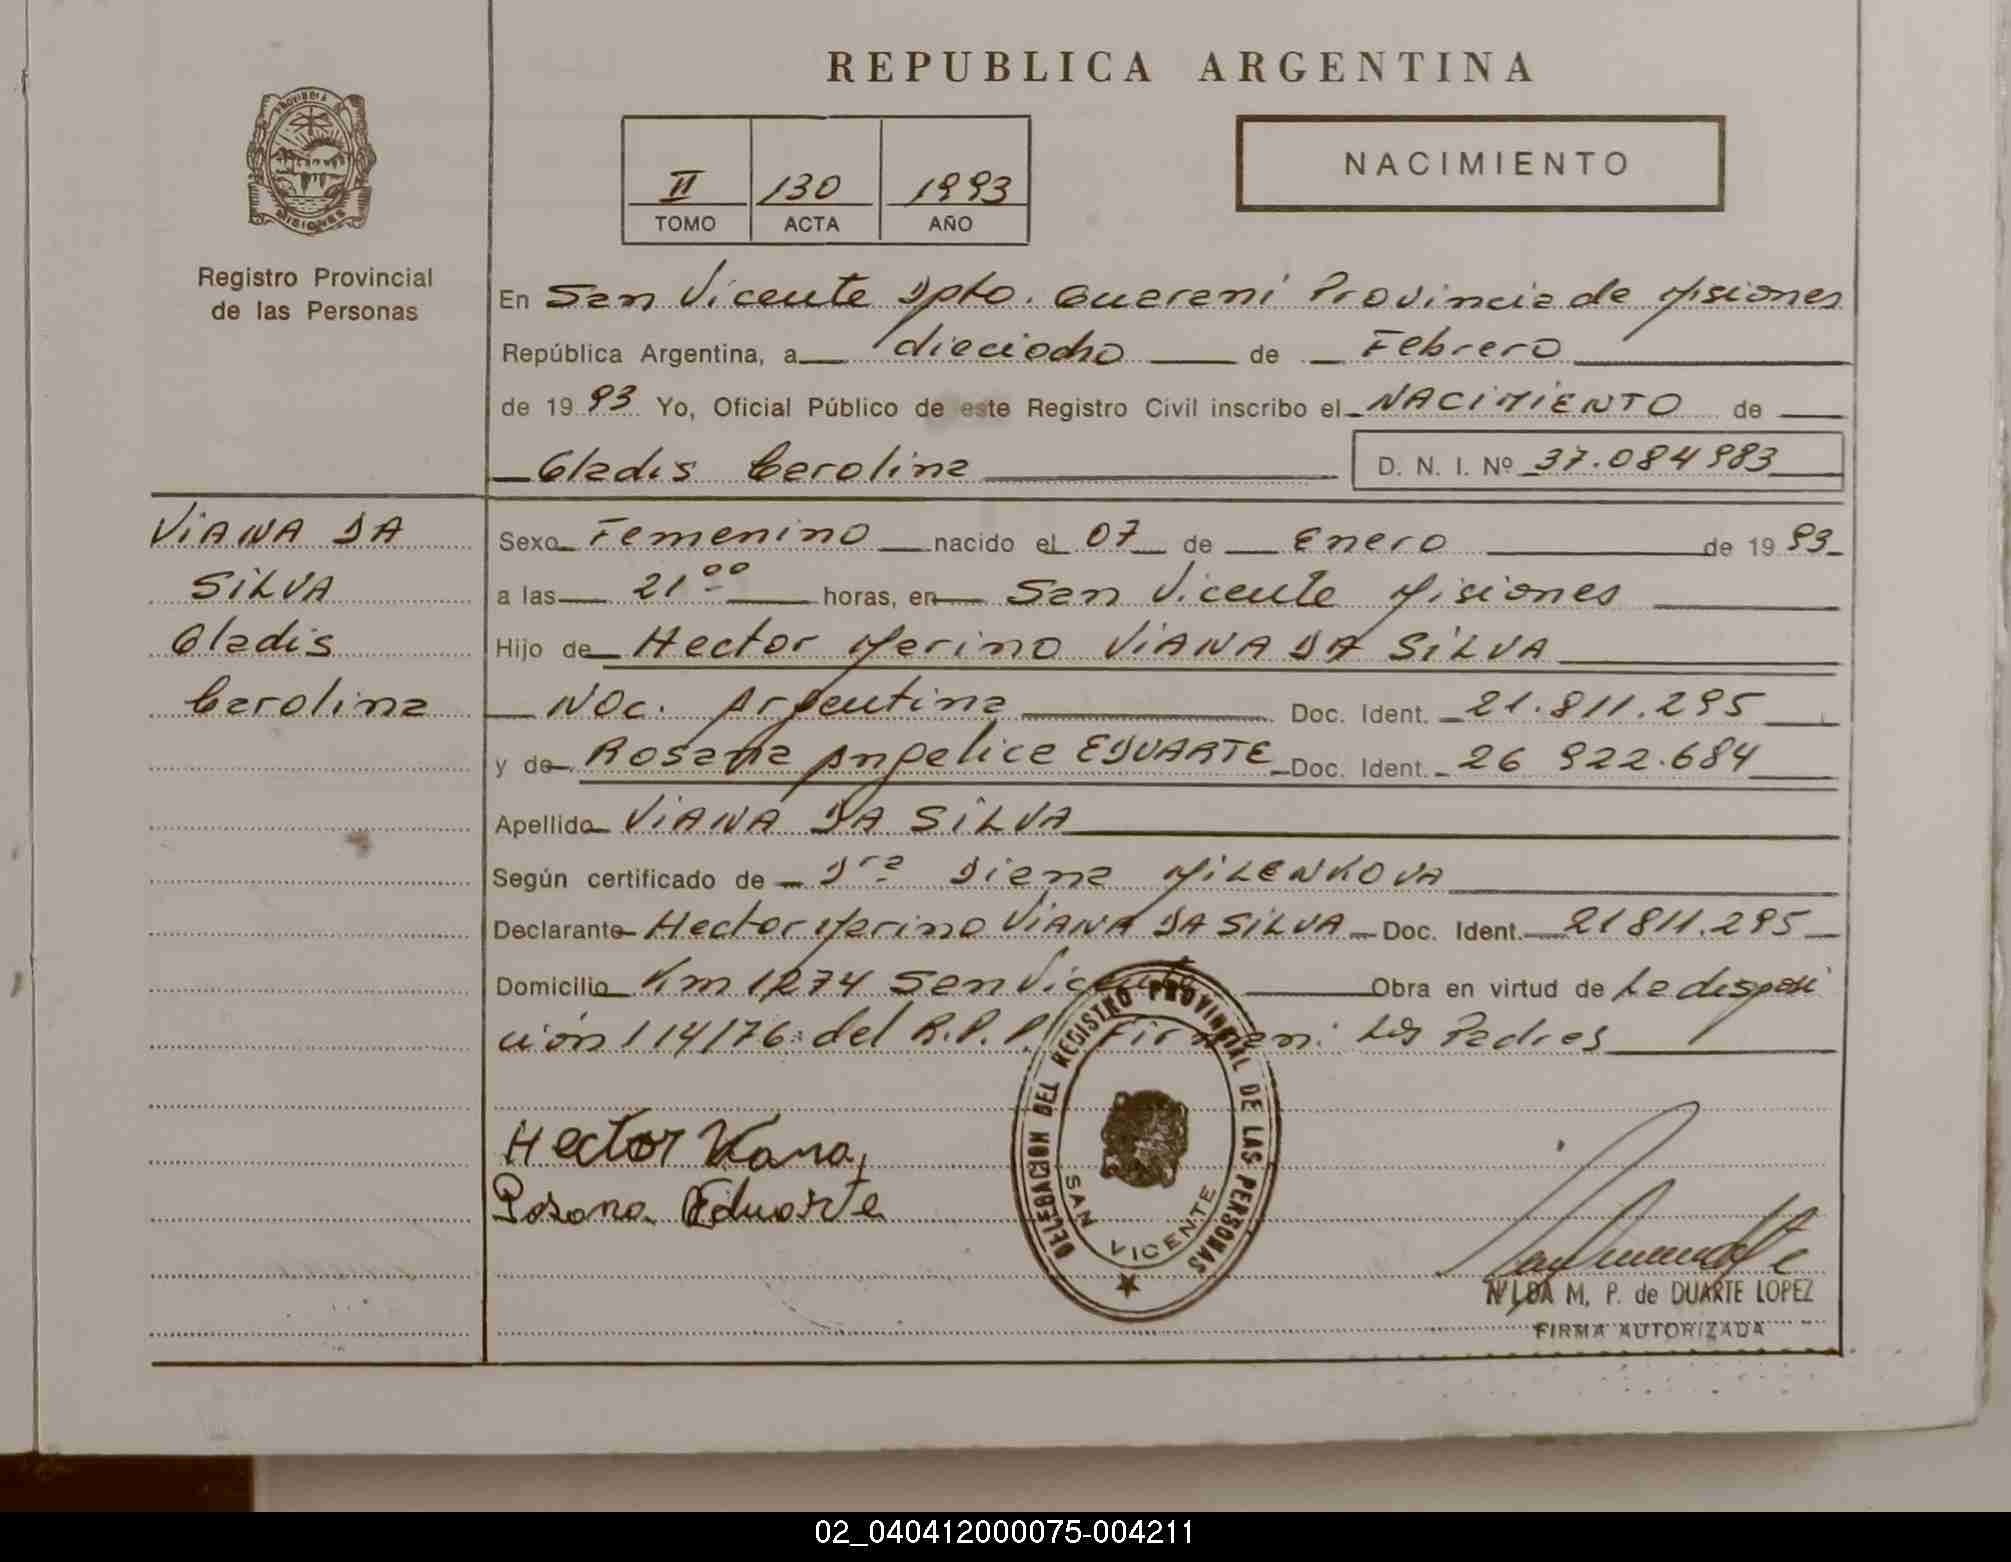 REPUBLICA ARGENTINA
PROVINCIA DE
MISIONES
Registro Provincial
de las Personas
II 130 1993
TOMO ACTA AÑO
NACIMIENTO
En San Vicente Dpto. Guaraní Provincia de Misiones
República Argentina, a dieciocho de Febrero
de 1993 Yo, Oficial Público de este Registro Civil inscribo el NACIMIENTO de
Gladis Carolina D. N. I. Nº 37.084983
VIANA DA
SILVA
Gladis
Carolina
Sexo Femenino nacido el 07 de Enero de 1993
a las 21⁰⁰ horas, en San Vicente Misiones
Hijo de Hector Marino VIANA DA SILVA
Nac. Argentina Doc. Ident. 21.811.295
y de Rosana Angelica EDUARTE Doc. Ident. 26 922.684
Apellido VIANA DA SILVA
Según certificado de Dra Diana MILENKOVA
Declarante Hector Marino VIANA DA SILVA Doc. Ident. 21811.295
Domicilio Km 1274 San Vicente Obra en virtud de La disposi
ción 114/76 del R.P.P. Firman: Los Padres
Hector Viana
Rosana Eduarte
DELEGACION DEL REGISTRO PROVINCIAL DE LAS PERSONAS
SAN VICENTE
NILDA M. P. de DUARTE LOPEZ
FIRMA AUTORIZADA
02_040412000075-004211